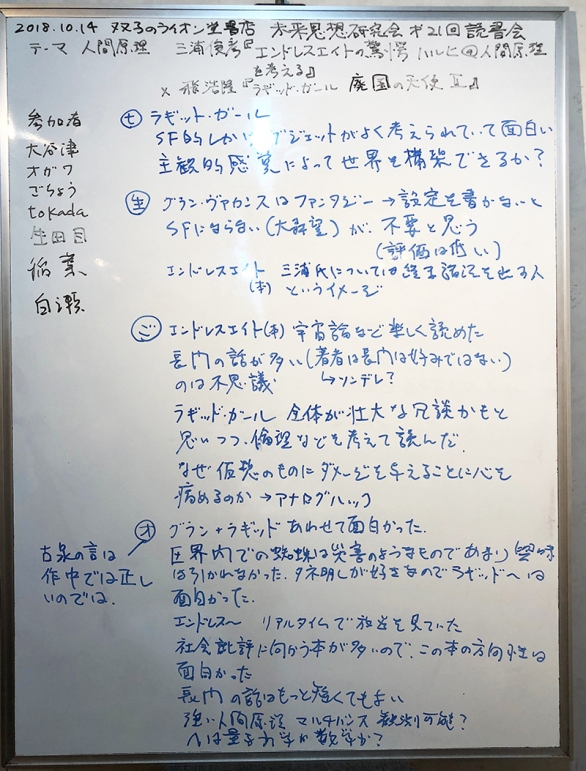 2018.10.14 双子のライオン堂書店 未来思想研究会 第21回 読書会
テーマ 人間原理 三浦俊彦『エンドレスエイトの驚愕 ハルヒ@人間原理
を考える』
× 飛浩隆『ラギッド・ガール 廃園の天使 Ⅱ』
参加者
大谷津
オガワ
ごちょう
tokada
生田目
稲葉
白瀬
ラギット・ガール
SF的しかけ ガジェットがよく考えられていて面白い
主観的感覚によって世界を構築できるか?
生 グラン・ヴァカンスはファンタジー→設定を書かないと
SFにならない(大森望)が、不要と思う
(評価は低い)
エンドレスエイト 三浦氏については
(本) というイメージ
ご エンドレスエイト(本) 宇宙論など楽しく読めた
長門の話が多い(著者は長門は好みではない)
のは不思議 ↳ツンデレ?
ラギッド・ガール 全体が壮大な冗談かもと
思いつつ、倫理なども考えて読んだ.
なぜ仮想のものにダメージを与えることに心を
病めるのか →アナログハック
オ グラン+ラギッド あわせて面白かった.
古泉の言は
作中では正し
いのでは.
区界内での蜘蛛は災害のようなものであまり興味
はひかれなかった. タネ明しが好きなのでラギッド〜は
面白かった.
エンドレス〜 リアルタイムで放送を見ていた
社会批評に向かう本が多いので、この本の方向性は
面白かった
長門の話はもっと短くてもよい
強い人間原理 マルチバース 観測可能?
へは量子力学か数学か?